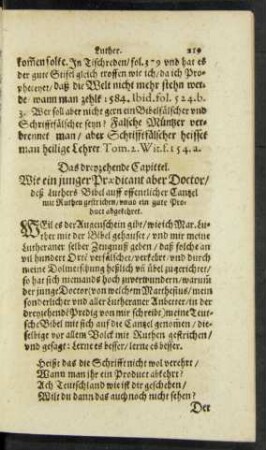 Luther. 219
kom̃en solte. In Tischreden/ fol. 579 vnd hat es
der gute Stifel gleich troffen wie ich/ da ich Pro-
pheceyet/ daß die Welt nicht mehr stehn wer-
de/ wann man zehlt 1584. Ibid. fol. 524. b.
3. Wer soll aber nicht gern ein Bibelfälscher vnd
Schrifftfälscher seyn? Falsche Müntzer ver-
brennet man/ aber Schrifftfälscher heisset
man heilige Lehrer Tom. 2. Wit. f. 154. a.
Das dreyzehende Capittel.
Wie ein junger Prædicant aber Doctor/
deß Luthers Bibel auff offentlicher Cantzel
mit Ruthen gestrichen/ wann ein gute Pro-
duct abgekehret.
WEil es der Augenschein gibt/ wie ich Mar. Lu-
ther mit der Bibel gehauset/ vnd mir meine
Lutheraner selber Zeugnuß geben/ daß solche an
vil hundert Orten verfälschet/ verkehrt/ vnd durch
meine Dolmetschung heßlich vñ übel zugerichtet/
so hat sich niemands hoch zuverwundern/ warumb
der junge Doctor/ von welchem Marthesius/ mein
sonderlicher vnd aller Lutheraner Anbetter/ in der
dreyzehende Predig von mir schreibt) meine Teut-
sche Bibel mit sich auf die Cantzel genom̃en/ die-
selbige vor allem Volck mit Ruthen gestrichen/
vnd gesagt: Lerne es besser/ lerne es besser.
Heist das die Schrifft nicht wol verehrt/
Wann man ihr ein Product abkehrt?
Ach Teutschland wie ist dir geschehen/
Wilt du dann das auch noch nicht sehen?
Der